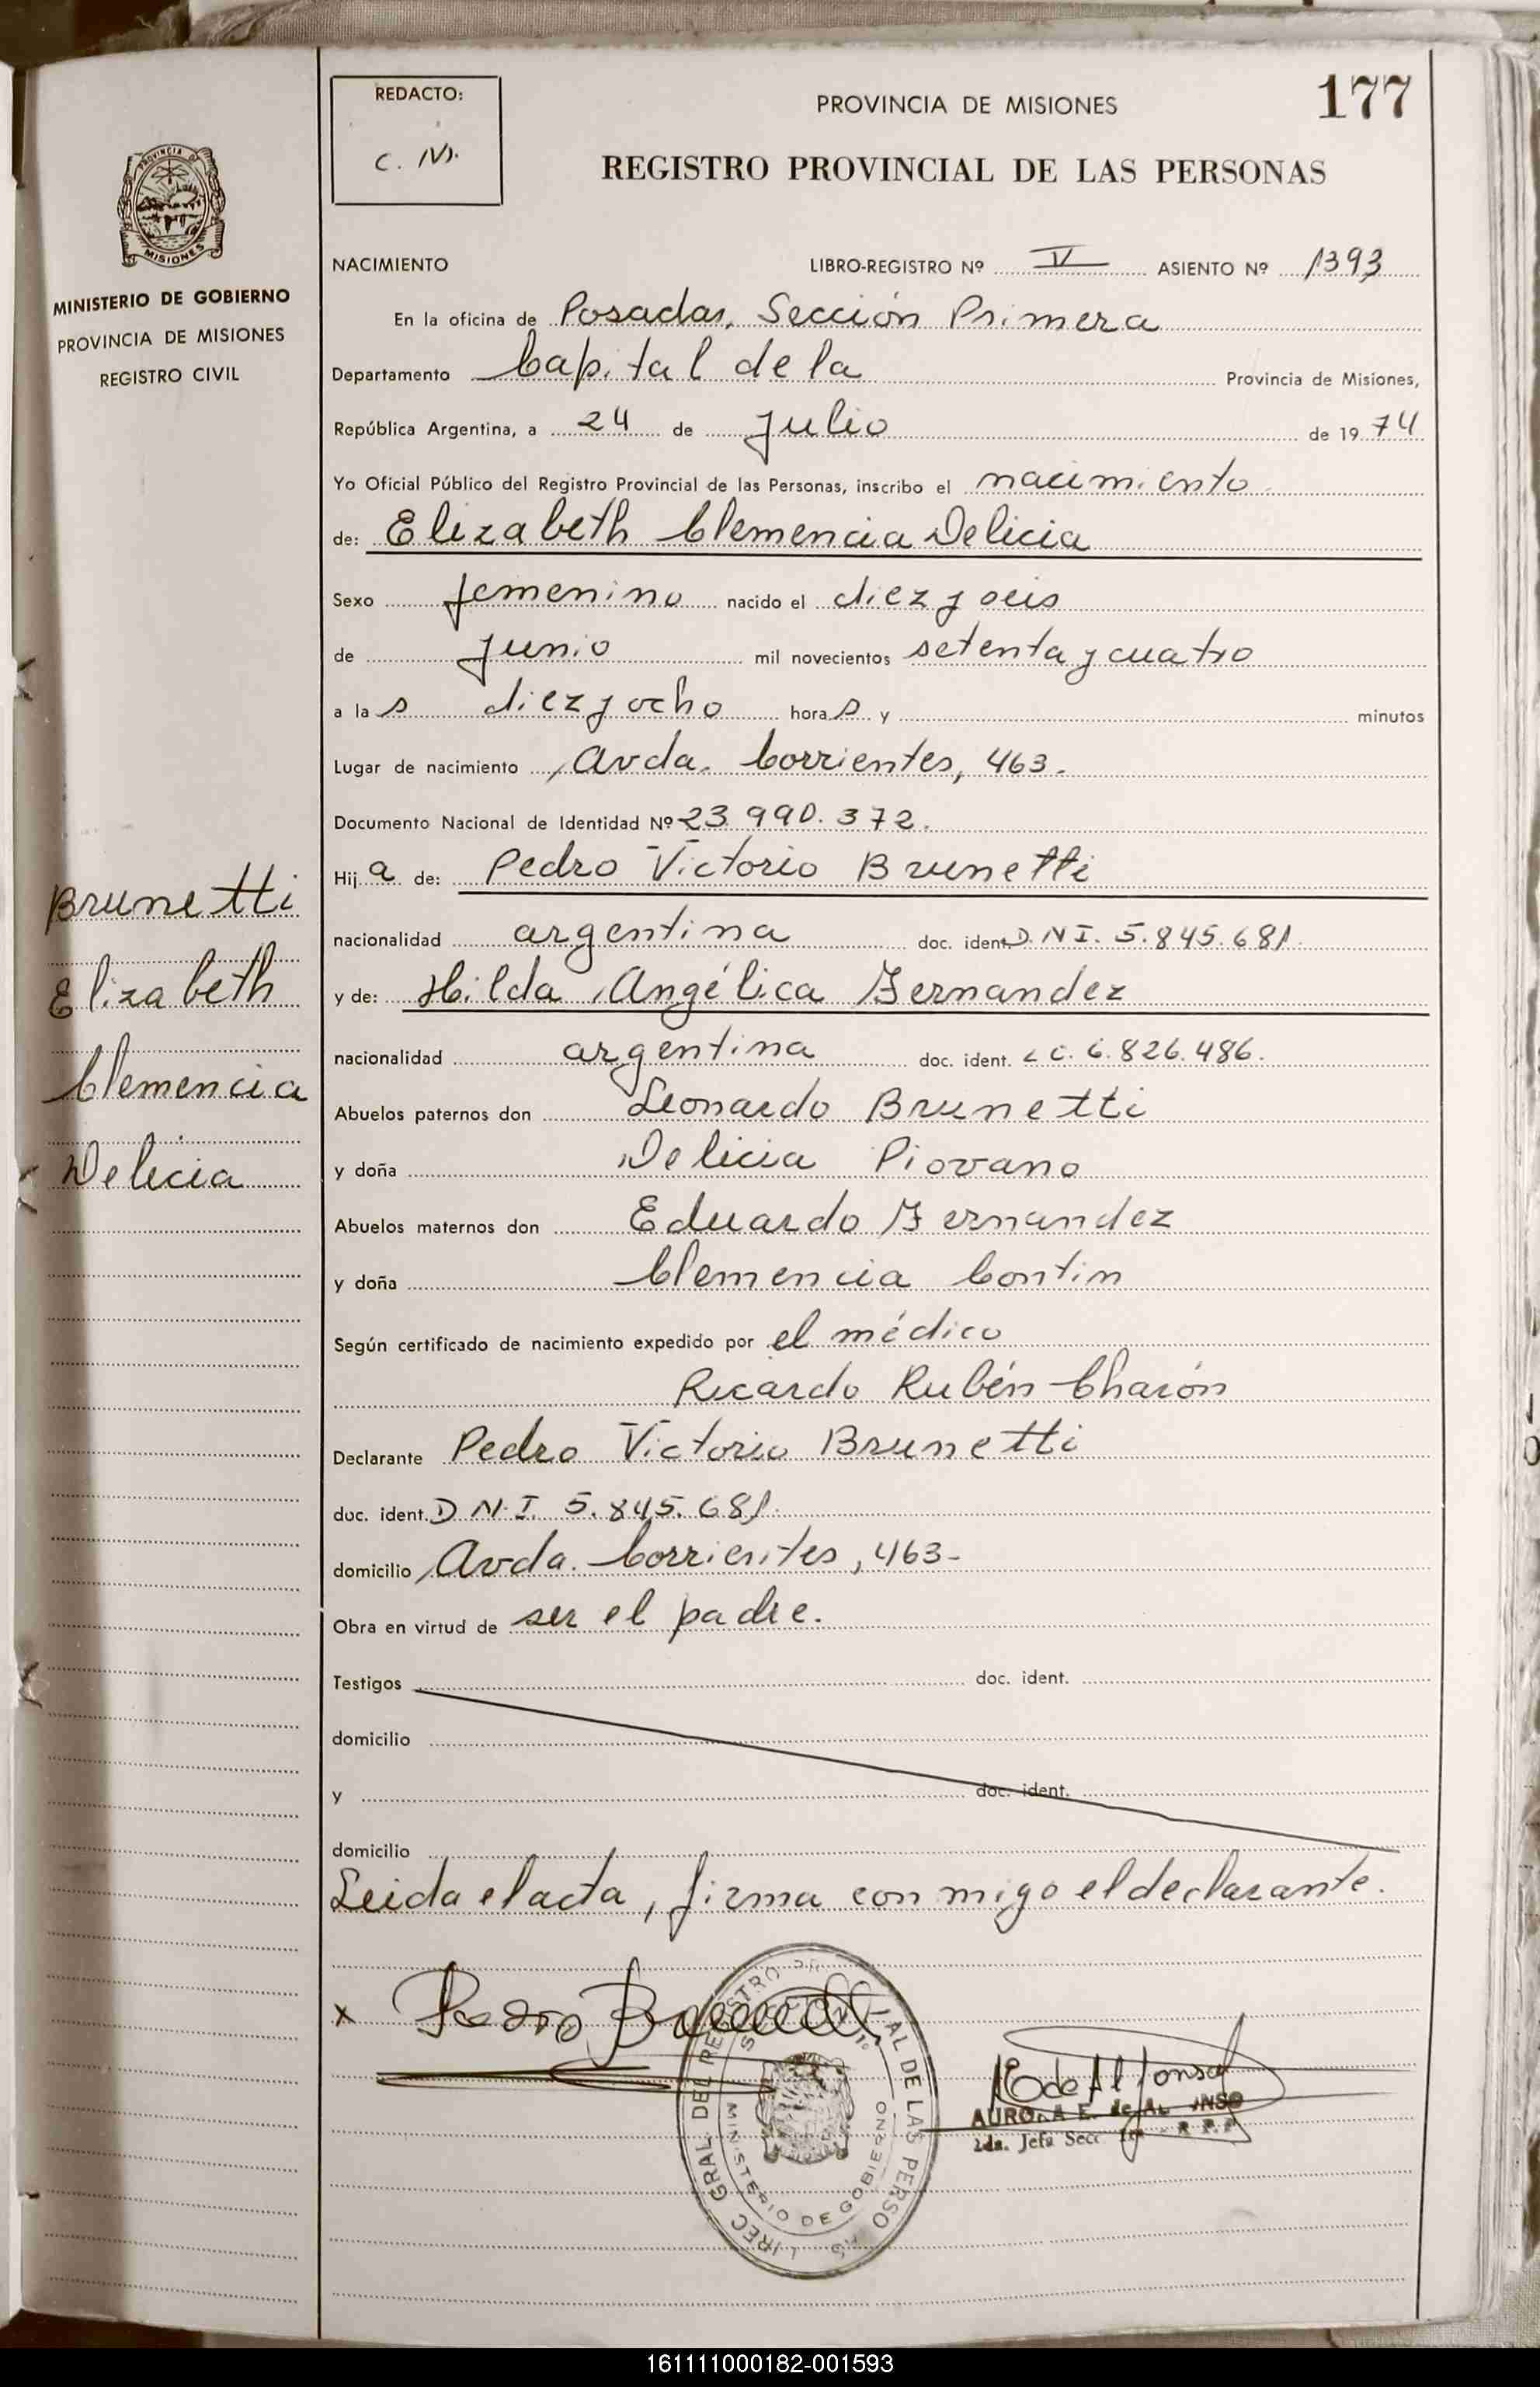 177
REDACTO:
C. IV.
PROVINCIA DE MISIONES
REGISTRO PROVINCIAL DE LAS PERSONAS
PROVINCIA D
MISIONES
MINISTERIO DE GOBIERNO
PROVINCIA DE MISIONES
REGISTRO CIVIL
Brunetti
Elizabeth
Clemencia
Delicia
NACIMIENTO LIBRO-REGISTRO Nº IV ASIENTO Nº 1393
En la oficina de Posadas, Sección Primera
Departamento Capital de la Provincia de Misiones,
República Argentina, a 24 de Julio de 1974
Yo Oficial Público del Registro Provincial de las Personas, inscribo el nacimiento
de: Elizabeth Clemencia Delicia
Sexo femenino nacido el diez y seis
de Junio mil novecientos setenta y cuatro
a las diez y ocho horas y minutos
Lugar de nacimiento Avda. Corrientes, 463.
Documento Nacional de Identidad Nº 23.990.372.
Hija de: Pedro Victorio Brunetti
nacionalidad argentina doc. ident. D.N.I. 5.845.681.
y de: Hilda Angélica Fernandez
nacionalidad argentina doc. ident. L C. 6.826.486.
Abuelos paternos don Leonardo Brunetti
y doña Delicia Piovano
Abuelos maternos don Eduardo Fernandez
y doña Clemencia Contin
Según certificado de nacimiento expedido por el médico
Ricardo Rubén Charón
Declarante Pedro Victorio Brunetti
doc. ident. D.N.I. 5.845.681.
domicilio Avda. Corrientes, 463-
Obra en virtud de ser el padre.
Testigos doc. ident.
domicilio
y doc. ident.
domicilio
Leida el acta, firma con migo el declarante.
x Pedro Brunetti
E de Alfonso
AURORA E. de AL NSO
2da. Jefa Secc. 1ra R.P.P.
IREC GRAL. DEL RE STRO PR IAL DE LAS PERSO AS
MINISTERIO DE GOBIERNO
161111000182-001593